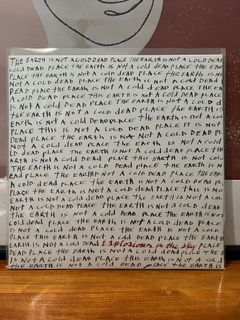 THE EARTH IS NOT A COLD DEAD PLACE THE EARTH IS NOT A COLD DEAD
COLD DEAD PLACE THE EARTH IS NOT A COLD DEAD PLACE THE EAR
PLACE THE EARTH IS NOT A COLD DEAD PLACE THE EARTH IS NOT
DEAD PLACE THE EARTH IS NOT A COLD DEAD PLACE THE EARTH IS
IS NOT A COLD DEAD PLACE THE EARTH IS NOT A COLD D
THE EARTH IS NOT A COLD DEAD PLACE THE EARTH IS NOT A
IS NOT A COLD DEAD PLACE THE EARTH IS NOT A COLD
PLACE THIS IS NOT A COLD DEAD PLACE EARTH IS NOT
DEAD PLACE THE EARTH IS NOT A COLD DEAD PL
IS NOT A COLD DEAD PLACE THE EARTH IS NOT A COLD
A COLD DEAD PLACE THE EARTH IS NOT COLD
THE EARTH IS NOT A COLD DEAD PLACE THE EARTH IS
PLACE THE EARTH IS NOT A COLD DEAD PLACE THE EAR
A COLD DEAD PLACE THE EARTH IS NOT A COLD DEAD PLACE
DEAD THE EARTH IS NOT A COLD DEAD PLACE THIS IS NO
NOT A COLD DEAD PLACE THE EARTH IS NOT A COLD DEAD
THE EARTH IS NOT A COLD DEAD PLACE THE EARTH IS NO
COLD DEAD PLACE THE EARTH IS NOT A COLD DEAD PLACE
IS NOT A COLD DEAD PLACE THE EARTH IS NOT A COLD
PLACE THE EARTH IS NOT A COLD DEAD PLACE THIS EARTH
EARTH IS NOT A COLD DEAD Explosions in the sky PLACE
DEAD PLACE THE EARTH IS NOT A COLD DEAD PLACE THE E
IS NOT A COLD DEAD PLACE THE EARTH IS NOT A COLD
THE EARTH IS NOT A COLD DEAD PLACE THE EARTH IS